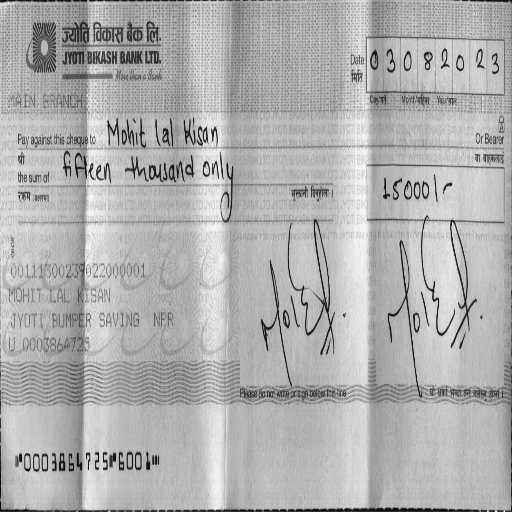 ज्योति विकास बैंक लि.
JYOTI BIKASH BANK LTD.
More than a Bank
MAIN BRANCH
Date
मिति
0 3 0 8 2 0 2 3
Pay against this cheque to Mohit lal Kisan
Or Bearer
श्री
वा वाहकलाई
the sum of fifteen thousand only
रकम
15000/-
00111300239022000001
MOHIT LAL KISAN
JYOTI BUMPER SAVING NPR
U 0003864725
Please do not write or sign below this line
⑈0003864725⑈6001⑈